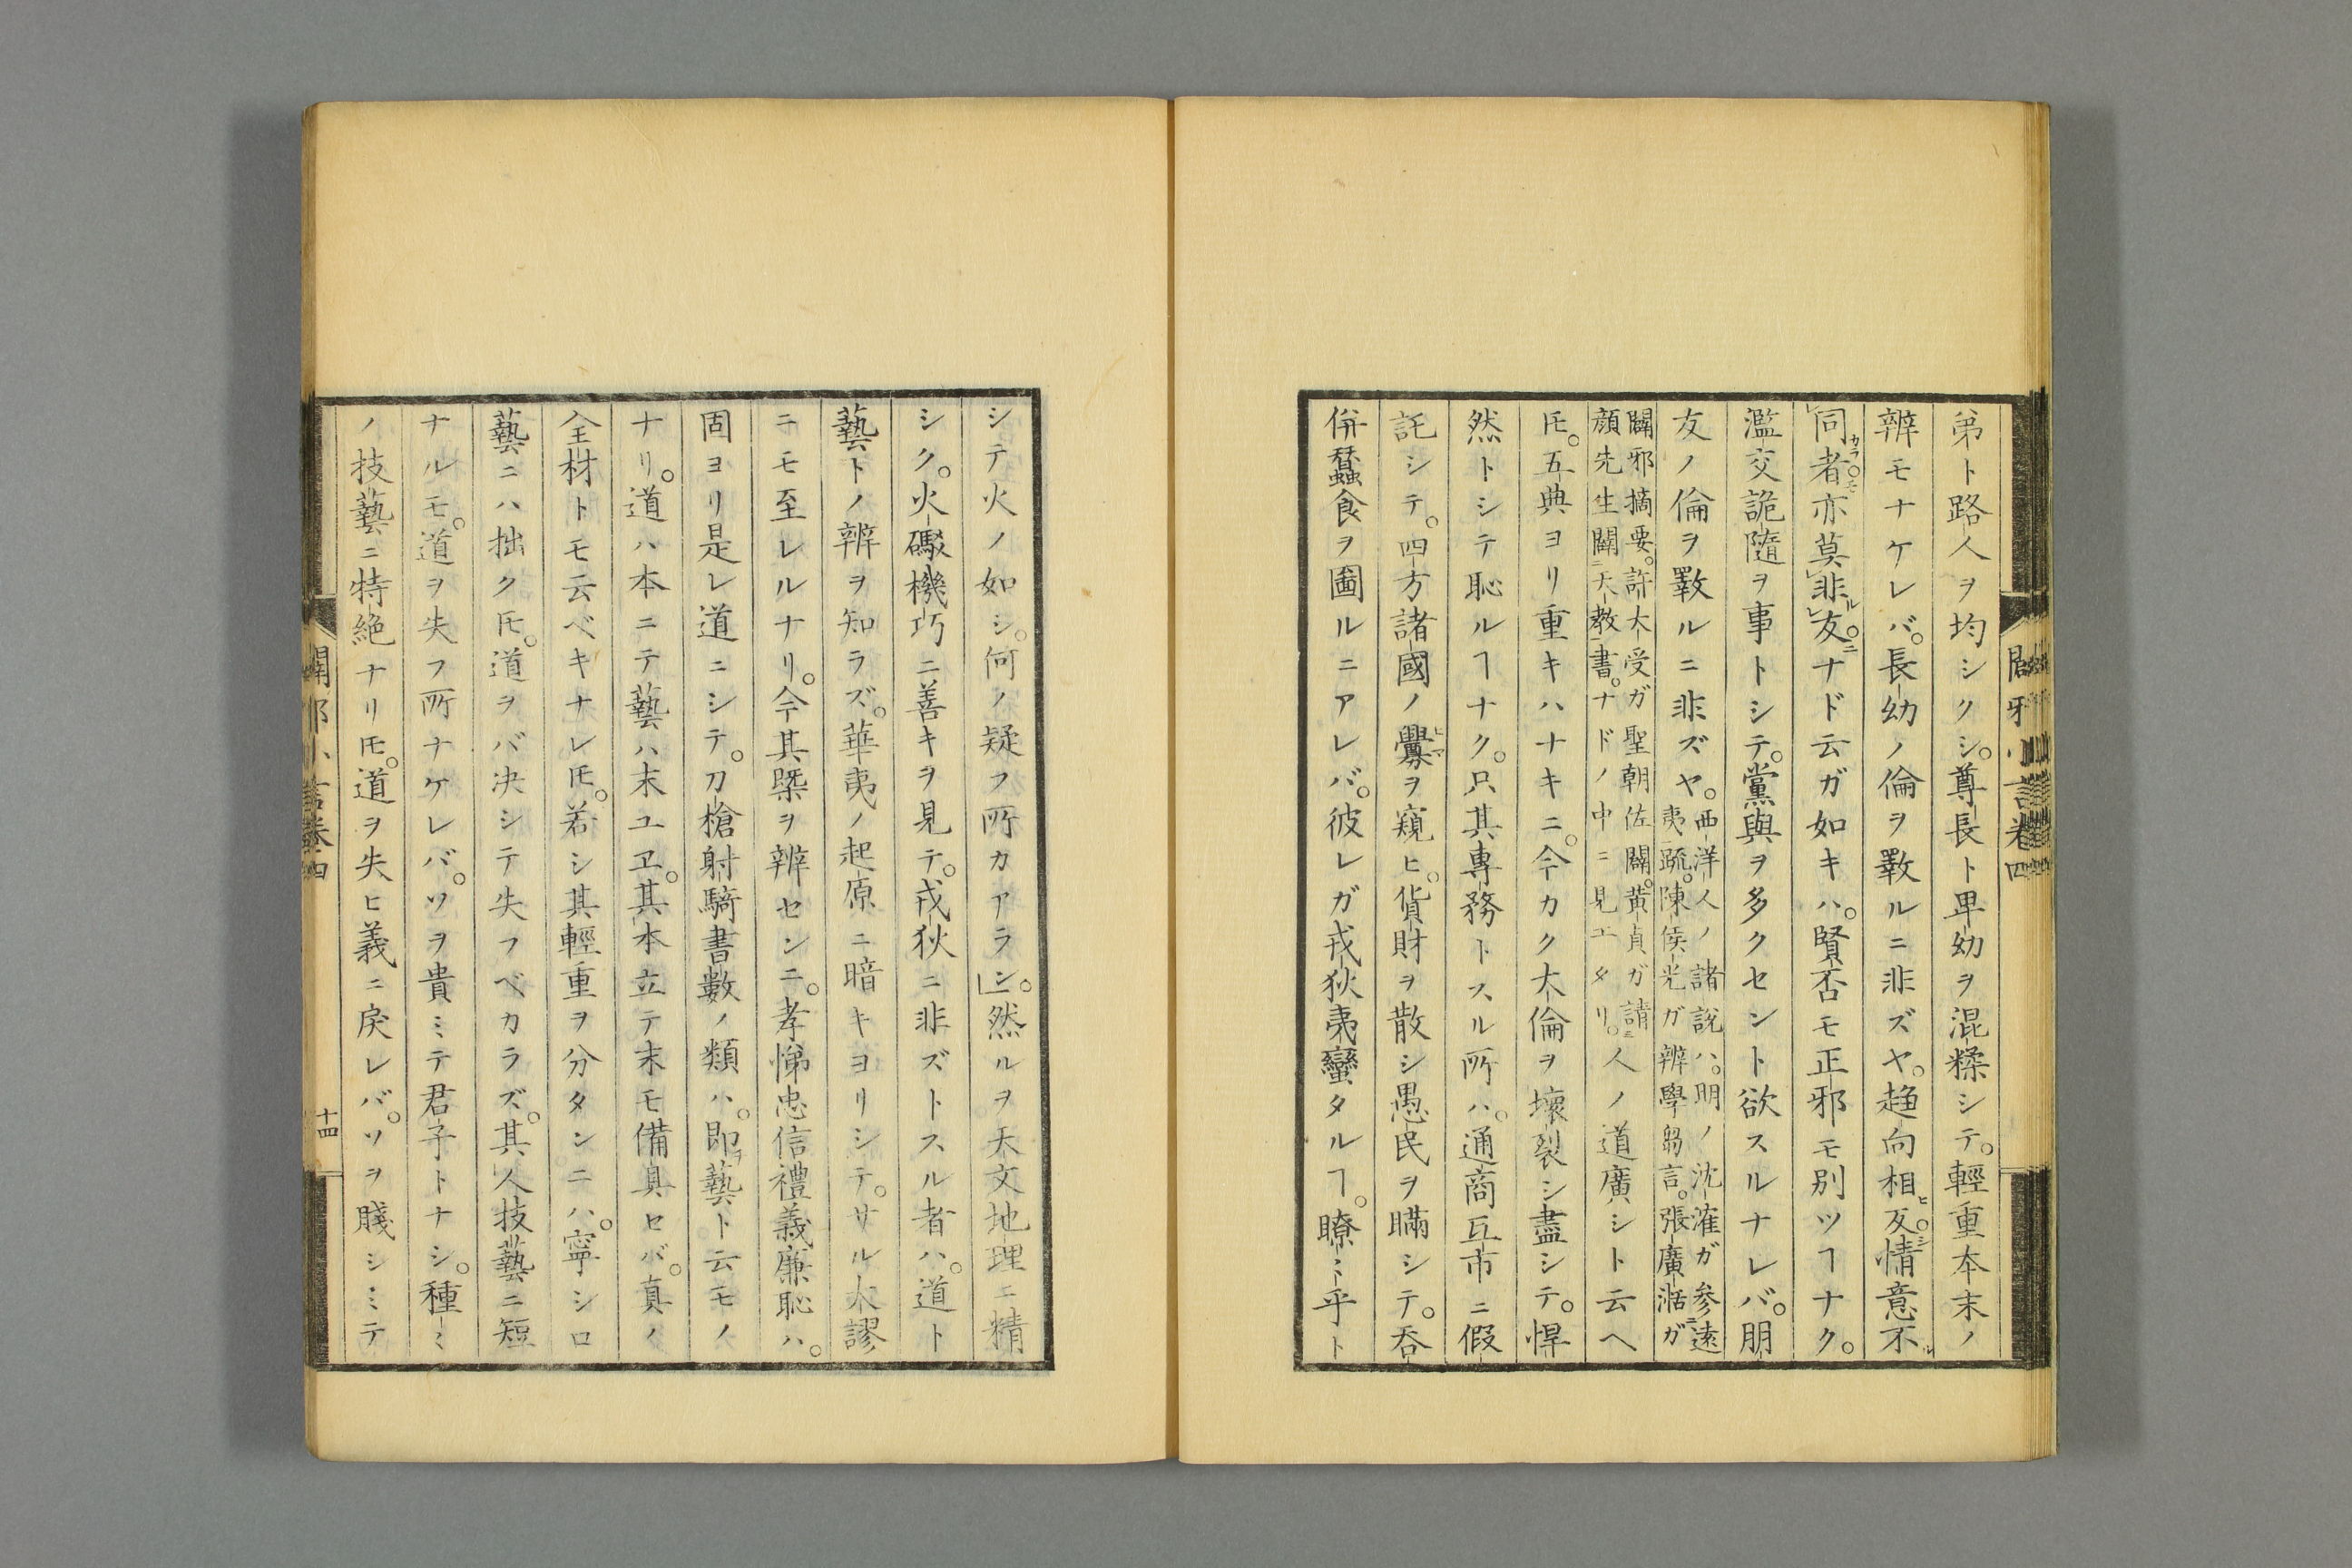 弟ト路人ヲ均シクシ。尊長ト卑幼ヲ混糅シテ。輕重本末ノ
辨モナケレバ。長幼ノ倫ヲ斁ルニ非ズヤ。趋向相ヒ反シ。情意不ル
同カラ。者モ亦莫非ル友ニ。ナド云ガ如キハ。賢否モ正邪モ別ツヿナク。
濫交詭隨ヲ事トシテ。黨與ヲ多クセント欲スルナレバ。朋
友ノ倫ヲ斁ルニ非ズヤ。西洋人ノ諸說ハ。明ノ沈㴶ガ参遠
夷疏。陳侯光ガ辨學芻言。張廣湉ガ
闢邪摘要。許大受ガ聖朝佐闢。黃貞ガ請ニ
顏先生闢ニ天教一書。ナドノ中ニ見エタリ。人ノ道廣シト云ヘ
𪜈。五典ヨリ重キハナキニ。今カク大倫ヲ壞裂シ盡シテ。悍
然トシテ恥ルヿナク。只其專務トスル所ハ。通商互市ニ假
託シテ。四方諸國ノ釁ヒマヲ窺ヒ。貨財ヲ散シ愚民ヲ瞞シテ。呑
併蠶食ヲ圖ルニアレバ。彼レガ戎狄夷蠻タルヿ。瞭〻乎ト
闢邪小言卷四
シテ火ノ如シ。何ノ疑フ所カアラン。」然ルヲ天文地理ニ精
シク。火礮機巧ニ善キヲ見テ。戎狄ニ非ズトスル者ハ。道ト
藝トノ辨ヲ知ラズ。華夷ノ起原ニ暗キヨリシテ。サル大謬
ニモ至レルナリ。今其槩ヲ辨センニ。孝悌忠信禮義廉恥ハ。
固ヨリ是レ道ニシテ。刀槍射騎書數ノ類ハ。即ヲ藝ト云モノ
ナリ。道ハ本ニテ藝ハ末ユヱ。其本立テ末モ備具セバ。真ノ
全材トモ云ベキナレ𪜈。若シ其輕重ヲ分タンニハ。寧シロ
藝ニハ拙ク𪜈。道ヲバ决シテ失フベカラズ。其人技藝ニ短
ナルモ。道ヲ失フ所ナケレバ。ソヲ貴ミテ君子トナシ。種〻
ノ技藝ニ特絶ナリ𪜈。道ヲ失ヒ義ニ戾レバ。ソヲ賤シミテ
闢邪小言卷四
十四